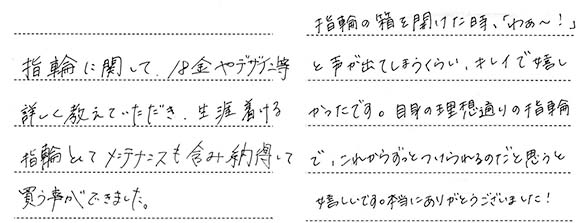 指輪に関して、18金やデザイン等
詳しく教えていただき、生涯着ける
指輪としてメンテナンスも含み納得して
買う事ができました。
指輪の箱を開けた時、「わぁ〜!」
と声が出てしまうくらい、キレイで嬉し
かったです。自身の理想通りの指輪
で、これからずっとつけられるのだと思うと
嬉しいです。本当にありがとうございました!